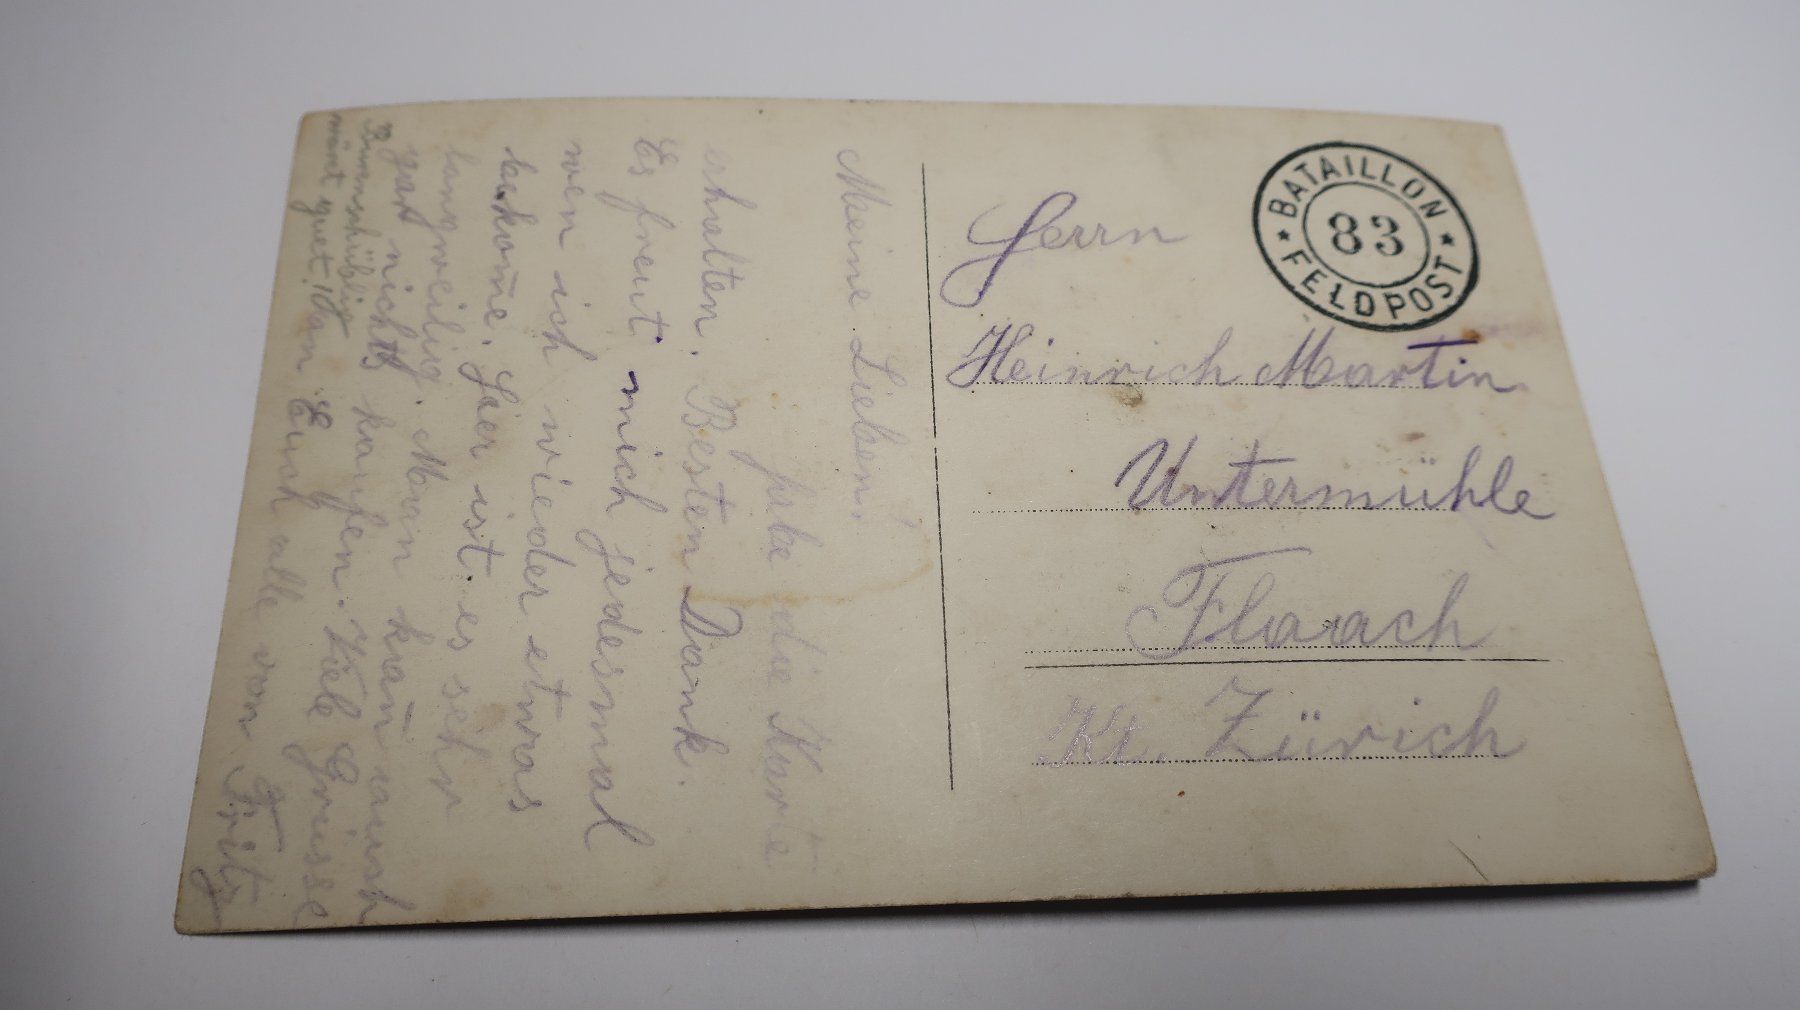 Meine Lieben!
habe die Karte
erhalten. Besten Dank.
Es freut mich jedesmal
wen ich wieder etwas
bekom̄e. Hier ist es sehr
langweilig. Man kan̄ auch
gar nichts kaufen. Viele Grüsse
an Euch alle von Fritz
wünst guet!
BATAILLON
83
FELDPOST
Herrn
Heinrich Martin
Untermühle
Flaach
Kt. Zürich